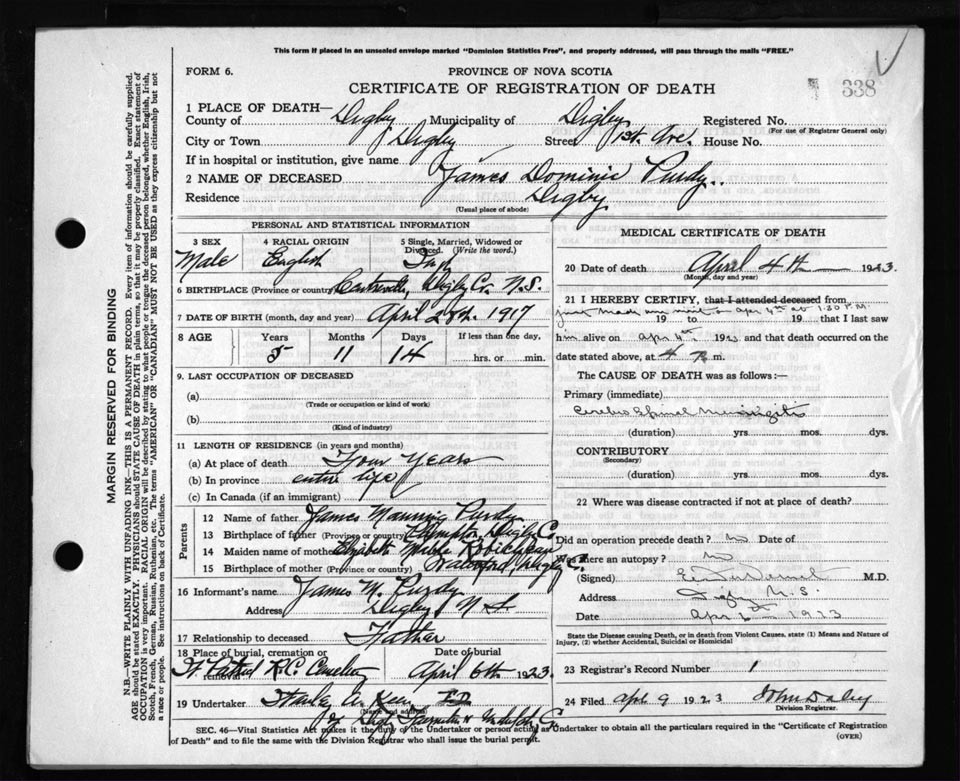 This form if placed in an unsealed envelope marked "Dominion Statistics Free", and properly addressed, will pass through the mails "FREE."
FORM 6.
PROVINCE OF NOVA SCOTIA
CERTIFICATE OF REGISTRATION OF DEATH
338
1 PLACE OF DEATH—
County of Digby Municipality of Digby Registered No.
(For use of Registrar General only)
City or Town Digby Street 1st. Ave. House No.
If in hospital or institution, give name
2 NAME OF DECEASED James Dominic Purdy.
Residence Digby
(Usual place of abode)
PERSONAL AND STATISTICAL INFORMATION
3 SEX 4 RACIAL ORIGIN 5 Single, Married, Widowed or Divorced. (Write the word.)
Male English
6 BIRTHPLACE (Province or country) Digby Co. N.S.
7 DATE OF BIRTH (month, day and year) April 1917
8 AGE Years Months Days If less than one day,
5 11 14 hrs. or min.
9. LAST OCCUPATION OF DECEASED
(a)
(Trade or occupation or kind of work)
(b)
(Kind of industry)
11 LENGTH OF RESIDENCE (in years and months)
(a) At place of death Four Years
(b) In province entire life
(c) In Canada (if an immigrant)
Parents
12 Name of father James Manning Purdy
13 Birthplace of father (Province or country) Plympton, Digby Co.
14 Maiden name of mother Elizabeth Robicheau
15 Birthplace of mother (Province or country) Digby
16 Informant's name James M. Purdy
Address Digby N S.
17 Relationship to deceased Father
18 Place of burial, cremation or removal Date of burial
R.C. Cemetery April 6th 1923
19 Undertaker
(Name and address)
MEDICAL CERTIFICATE OF DEATH
20 Date of death April 4th 1923.
(Month, day and year)
21 I HEREBY CERTIFY, that I attended deceased from
just made one visit on Apr 4th at 1.30 P.M.
19 to 19 that I last saw
him alive on Apr 4th 1923 and that death occurred on the
date stated above, at 4 P. m.
The CAUSE OF DEATH was as follows:—
Primary (immediate)
Cerebro Spinal Meningitis
(duration) yrs. mos. dys.
CONTRIBUTORY
(Secondary)
(duration) yrs. mos. dys.
22 Where was disease contracted if not at place of death?
Did an operation precede death? No Date of
Was there an autopsy? No
(Signed) M.D.
Address Digby N.S.
Date Apr 1923
State the Disease causing Death, or in death from Violent Causes, state (1) Means and Nature of Injury, (2) whether Accidental, Suicidal or Homicidal
23 Registrar's Record Number 1
24 Filed Apl 9 1923 John Daley
Division Registrar.
SEC. 46—Vital Statistics Act makes it the duty of the Undertaker or person acting as Undertaker to obtain all the particulars required in the "Certificate of Registration
of Death" and to file the same with the Division Registrar who shall issue the burial permit.
(OVER)
MARGIN RESERVED FOR BINDING
N.B.—WRITE PLAINLY WITH UNFADING INK—THIS IS A PERMANENT RECORD. Every item of information should be carefully supplied.
AGE should be stated EXACTLY. PHYSICIANS should STATE CAUSE OF DEATH in plain terms, so that it may be properly classified. Exact statement of
OCCUPATION is very important. RACIAL ORIGIN will be described by stating to what people or tongue the deceased person belonged, whether English, Irish,
Scotch, French, German, Russian, Ruthenian, etc. The terms "AMERICAN" or "CANADIAN" MUST NOT BE USED as they express citizenship but not
a race or people. See instructions on back of Certificate.